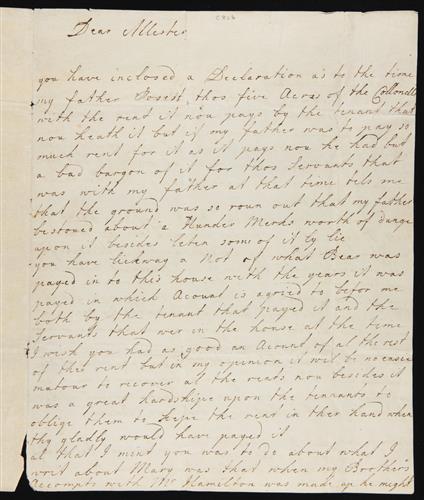 Dear Allester
you have inclosed a Declaration as to the time
my father Posest thos five Acres of the Collonell
with the rent it nou pays by the tenant that
nou heath it but if my father was to pay so
much rent for it as it pays nou he had but
a bad bargon of it for thos Servants that
was with my father at that time tels me
that the ground was so roun out that my father
bestoued about a Hunder Merks worth of dunge
upon it besides leten some of it ly lie
you have lickway a Not of what Bear was
payed in to this house with the years it was
payed in which Acount is agried to befor me
both by the tenant that payed it and the
Servants that wer in the house at the time
I wish you had as good an Acount of al the rest
of the rent but in my opinion it will be no easie
matour to recover al the rents nou besides it
was a great hardshipe upon the tennants to
oblige them to kepe the rent in ther hand when
thy gladly would have payed it
al that I mint you was to do about what I
writ about Mary was that when my Brother's
Accompts with Mr Hamilton was made up he might